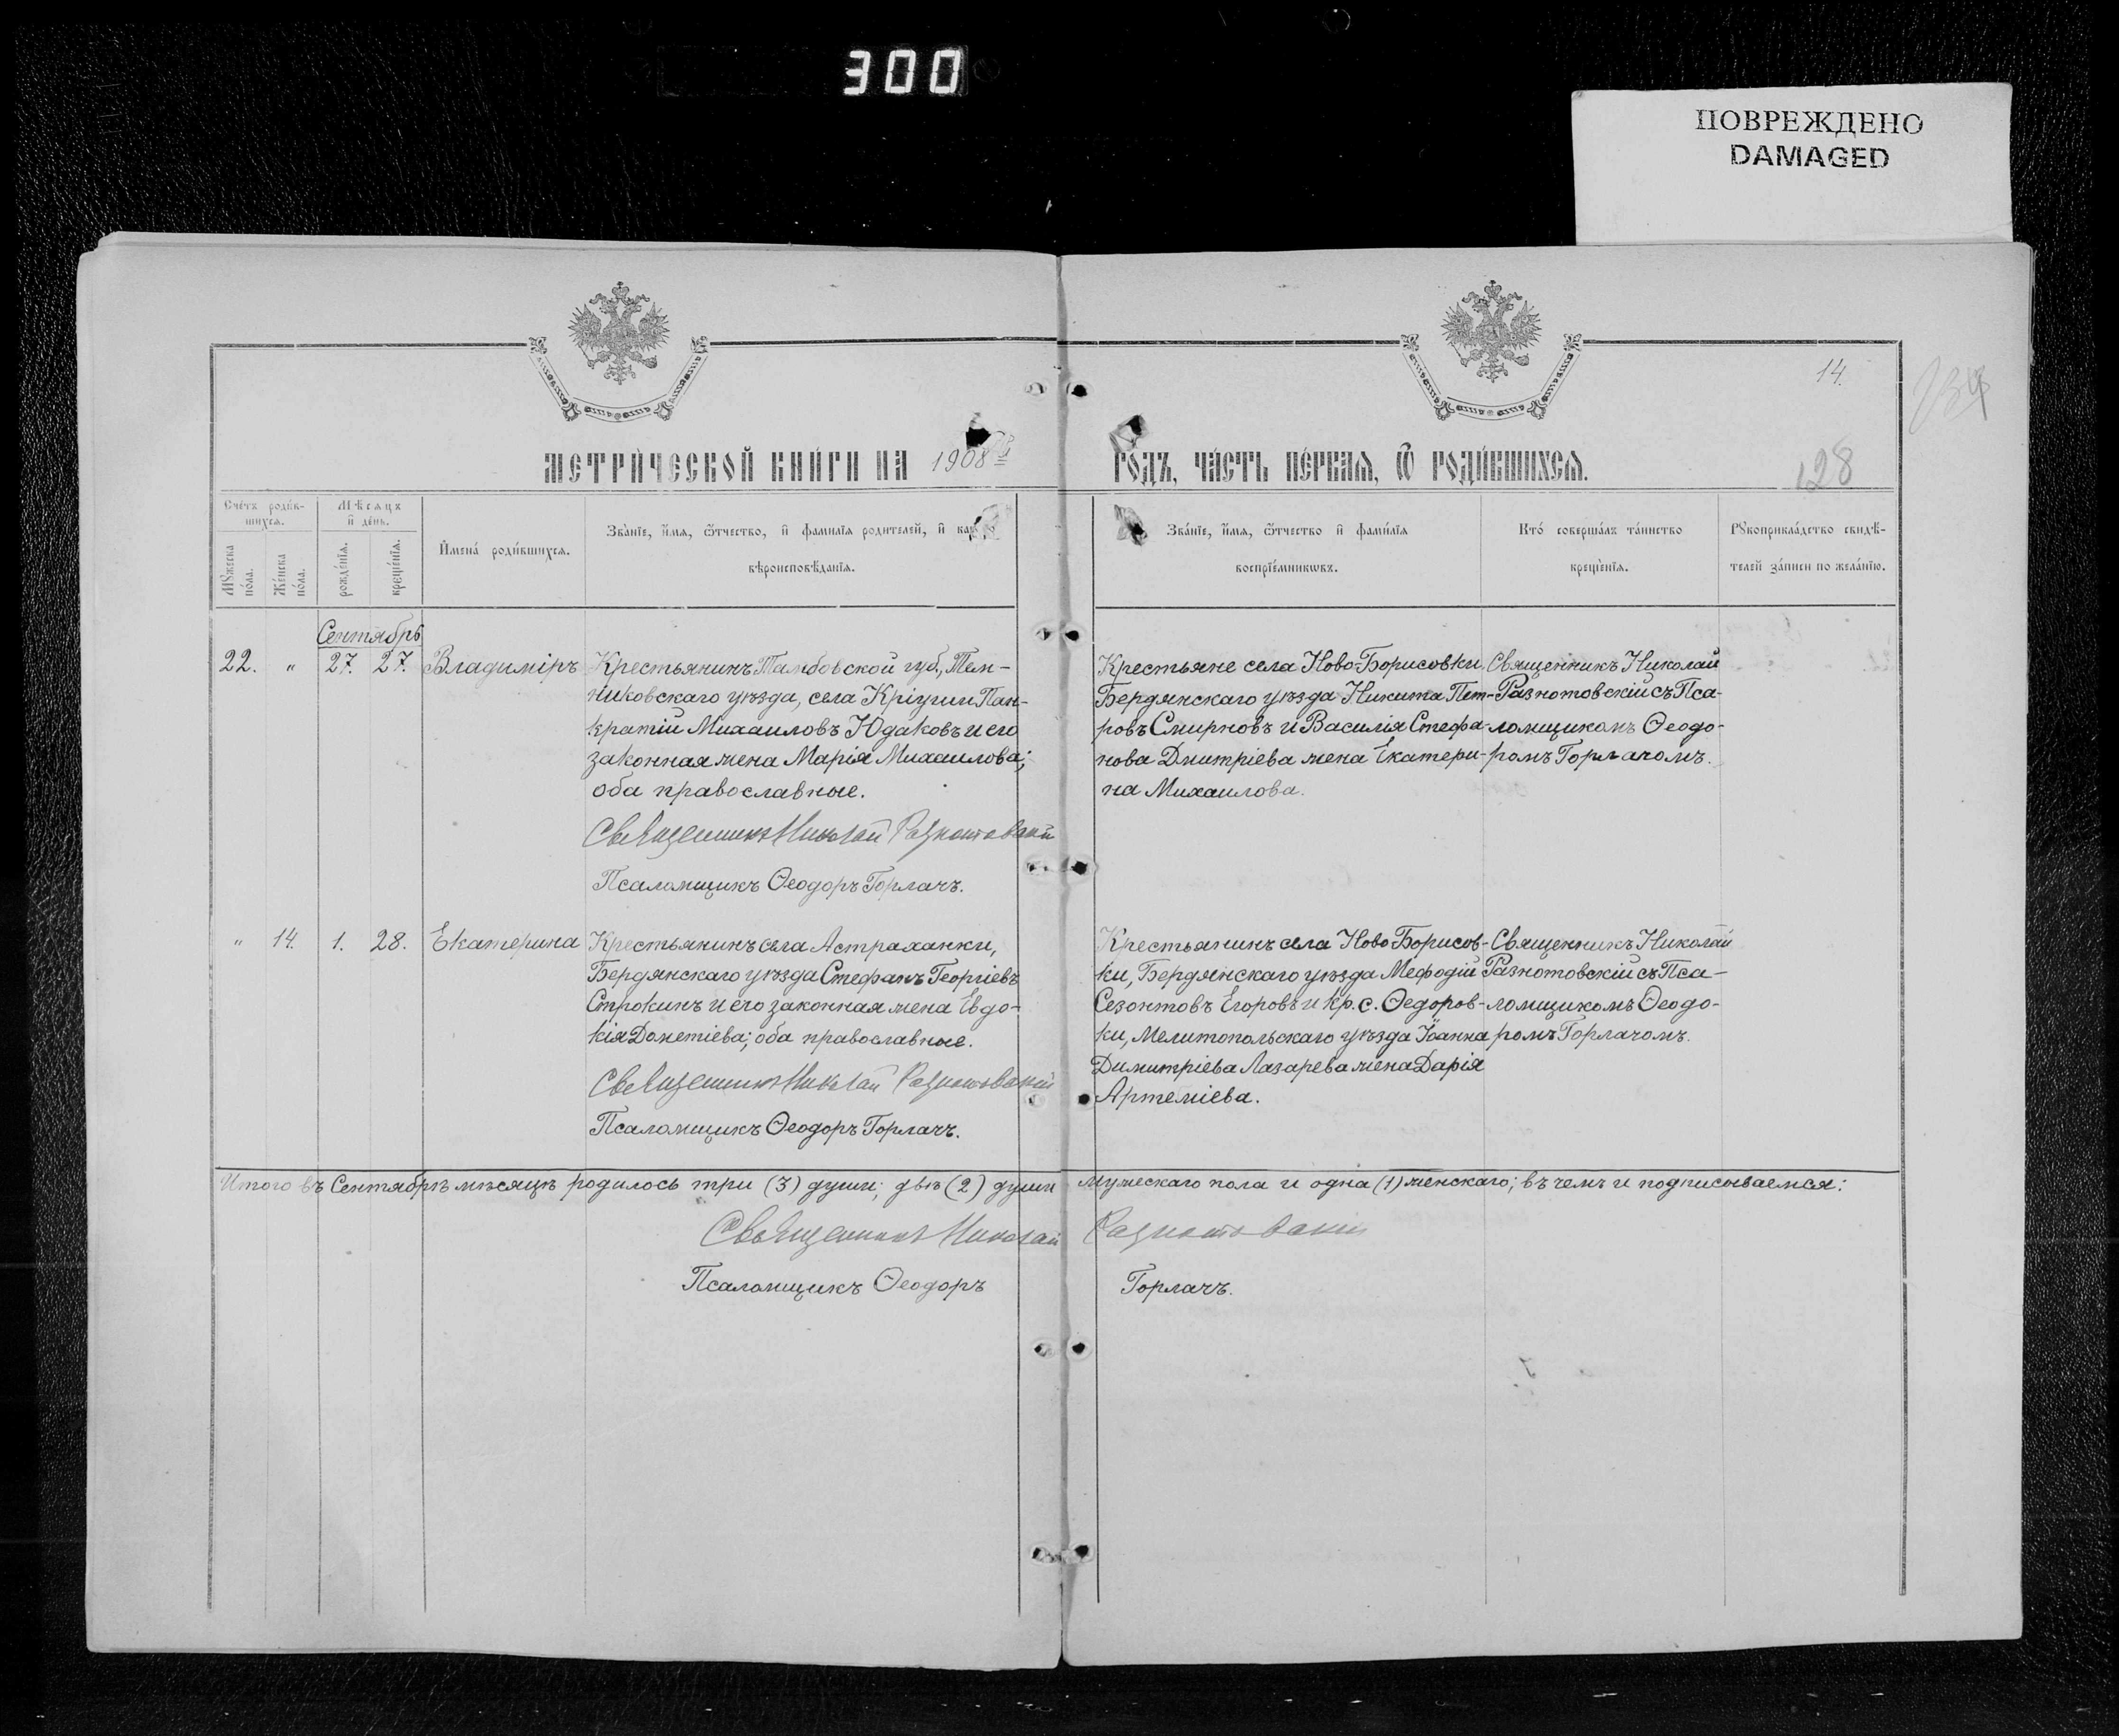 300
ПОВРЕЖДЕНО
DAMAGED
14.
128
МЕТРИ́ЧЕСКОЙ КНИ́ГИ НА 1908й ГО́ДЪ, ЧА́СТЬ ПЕ́РВАЯ, Ѿ РОДИ́ВШИХСЯ.
Счетъ роди́в-
шихся.
Мѣсяцъ
и де́нь.
Мꙋжеска
по́ла.
Же́нска
по́ла.
рожде́нїя.
креще́нїя.
Имена́ роди́вшихся.
Зва́нїе, и́мя, ѻ́тчество, и фами́лїя родителей, и
вѣроисповѣ́данїя.
Зва́нїе, и́мя, ѻ́тчество и фами́лїя
воспрїе́мникѡвъ.
Кто́ соверша́лъ та́инство
креще́нїя.
Рꙋкоприкла́дство свидѣ́-
телей за́писи по жела́нїю.
Сентябрь
22. " 27. 27. Владиміръ
Крестьянинъ Тамбовской губ., Тем-
никовскаго уѣзда, села Кріуши Пан-
кратій Михаиловъ Юдаковъ и его
законная жена Марія Михаилова;
оба православные.
Священникъ Николай Разнотовскій
Псаломщикъ Ѳеодоръ Горлачъ.
Крестьяне села Ново-Борисовки,
Бердянскаго уѣзда Никита Пет-
ровъ Смирновъ и Василія Стефа-
нова Дмитріева жена Екатери-
на Михаилова.
Священникъ Николай
Разнотовскій съ Пса-
ломщикомъ Ѳеодо-
ромъ Горлачомъ.
" 14. 1. 28. Екатерина
Крестьянинъ села Астраханки,
Бердянскаго уѣзда Стефанъ Георгіевъ
Строкинъ и его законная жена Евдо-
кія Дометіева; оба православные.
Священникъ Николай Разнотовскій
Псаломщикъ Ѳеодоръ Горлачъ.
Крестьянинъ села Ново Борисов-
ки, Бердянскаго уѣзда Мефодій
Сезонтовъ Егоровъ и кр. с. Ѳедоров-
ки, Мелитопольскаго уѣзда Іоанна
Димитріева Лазарева жена Дарія
Артеміева.
Священникъ Николай
Разнотовскій съ Пса-
ломщикомъ Ѳеодо-
ромъ Горлачомъ.
Итого въ Сентябрѣ мѣсяцѣ родилось три (3) души; двѣ (2) души мужескаго пола и одна (1) женскаго; въ чемъ и подписываемся:
Священникъ Николай Разнотовскій
Псаломщикъ Ѳеодоръ Горлачъ.